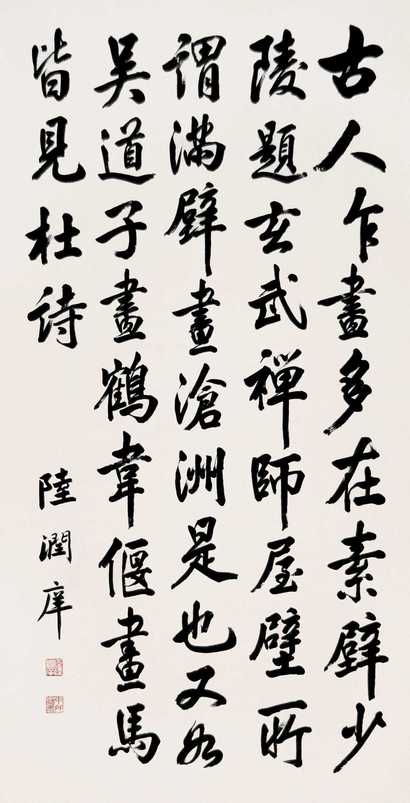 古人作畫多在素壁少
陵題玄武禪師屋壁所
謂滿壁畫滄洲是也又如
吴道子畫鶴韋偃畫馬
皆見杜詩
陸潤庠